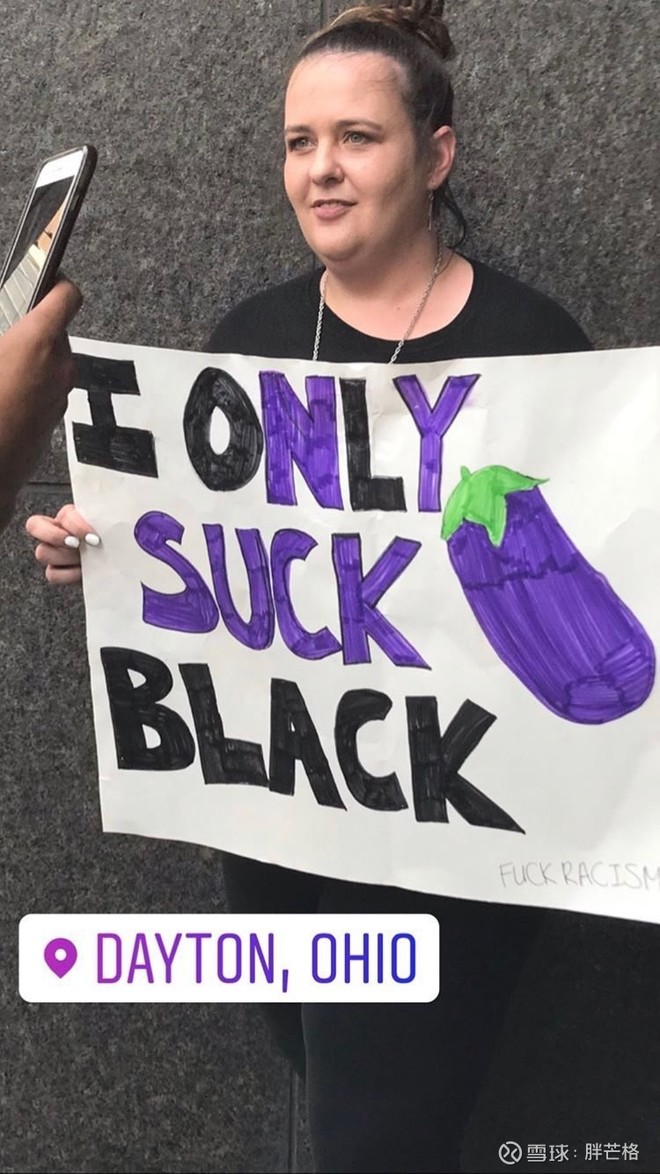 I ONLY
SUCK
BLACK
FUCK RACISM
DAYTON, OHIO
雪球：胖芒格